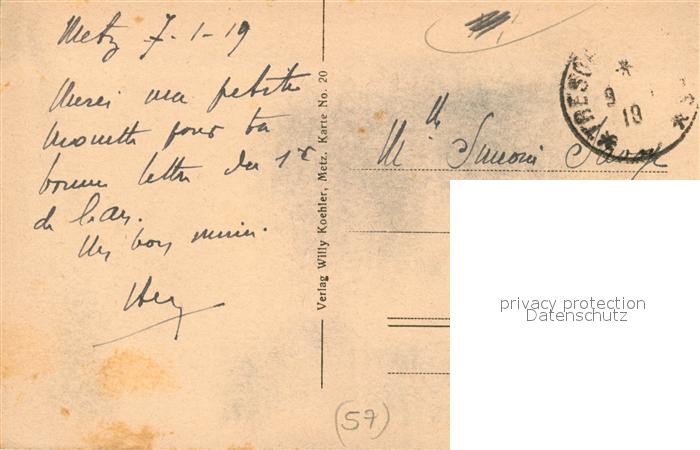 Metz 7-1-19
Merci ma petite
mouette pour ta
bonne lettre du 1er
de l'an.
Un bon mimi.
Verlag Willy Koehler, Metz. Karte No. 20
TRESOR
9
19
Mlle Simone
privacy protection
Datenschutz
(57)